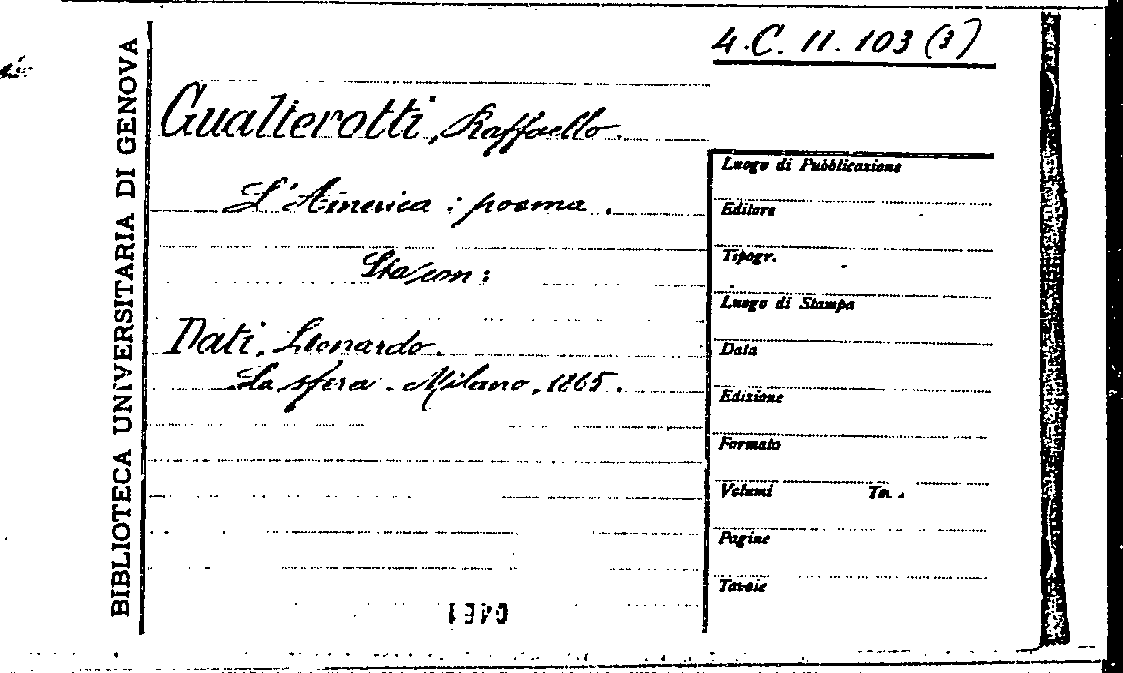 4.C. 11. 103 (3)
BIBLIOTECA UNIVERSITARIA DI GENOVA
Gualterotti, Raffaello.
L'America : poema.
Sta con :
Dati, Leonardo.
La sfera. Milano, 1865.
Luogo di Pubblicazione
Editore
Tipogr.
Luogo di Stampa
Data
Edizione
Formato
Volumi
Pagine
Tavole